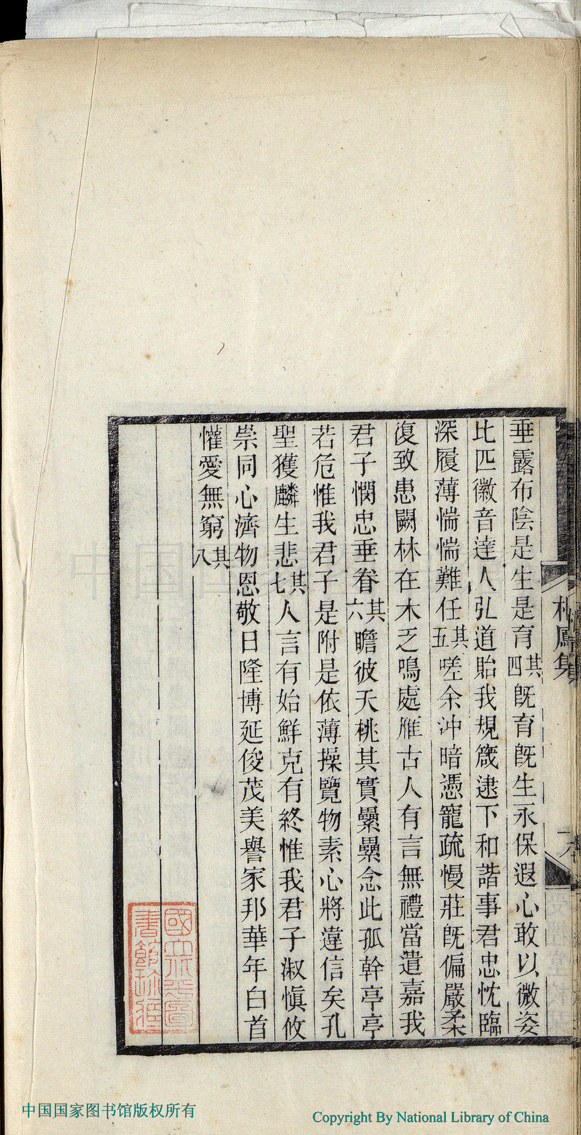 垂露布陰是生是育其四既育既生永保遐心敢以微姿
比匹徽音達人弘道貽我規箴逮下和諧事君忠忱臨
深履薄惴惴難任其五嗟余沖暗憑寵疏慢莊既偏嚴柔
復致患闕林在木乏鳴處雁古人有言無禮當遣嘉我
君子憫忠垂眷其六瞻彼夭桃其實纍纍念此孤幹亭亭
若危惟我君子是附是依薄操覽物素心將違信矣孔
聖獲麟生悲其七人言有始鮮克有終惟我君子淑慎攸
崇同心濟物恩敬日隆博延俊茂美譽家邦華年白首
懽愛無窮其八
中国国家图书馆版权所有
Copyright By National Library of China